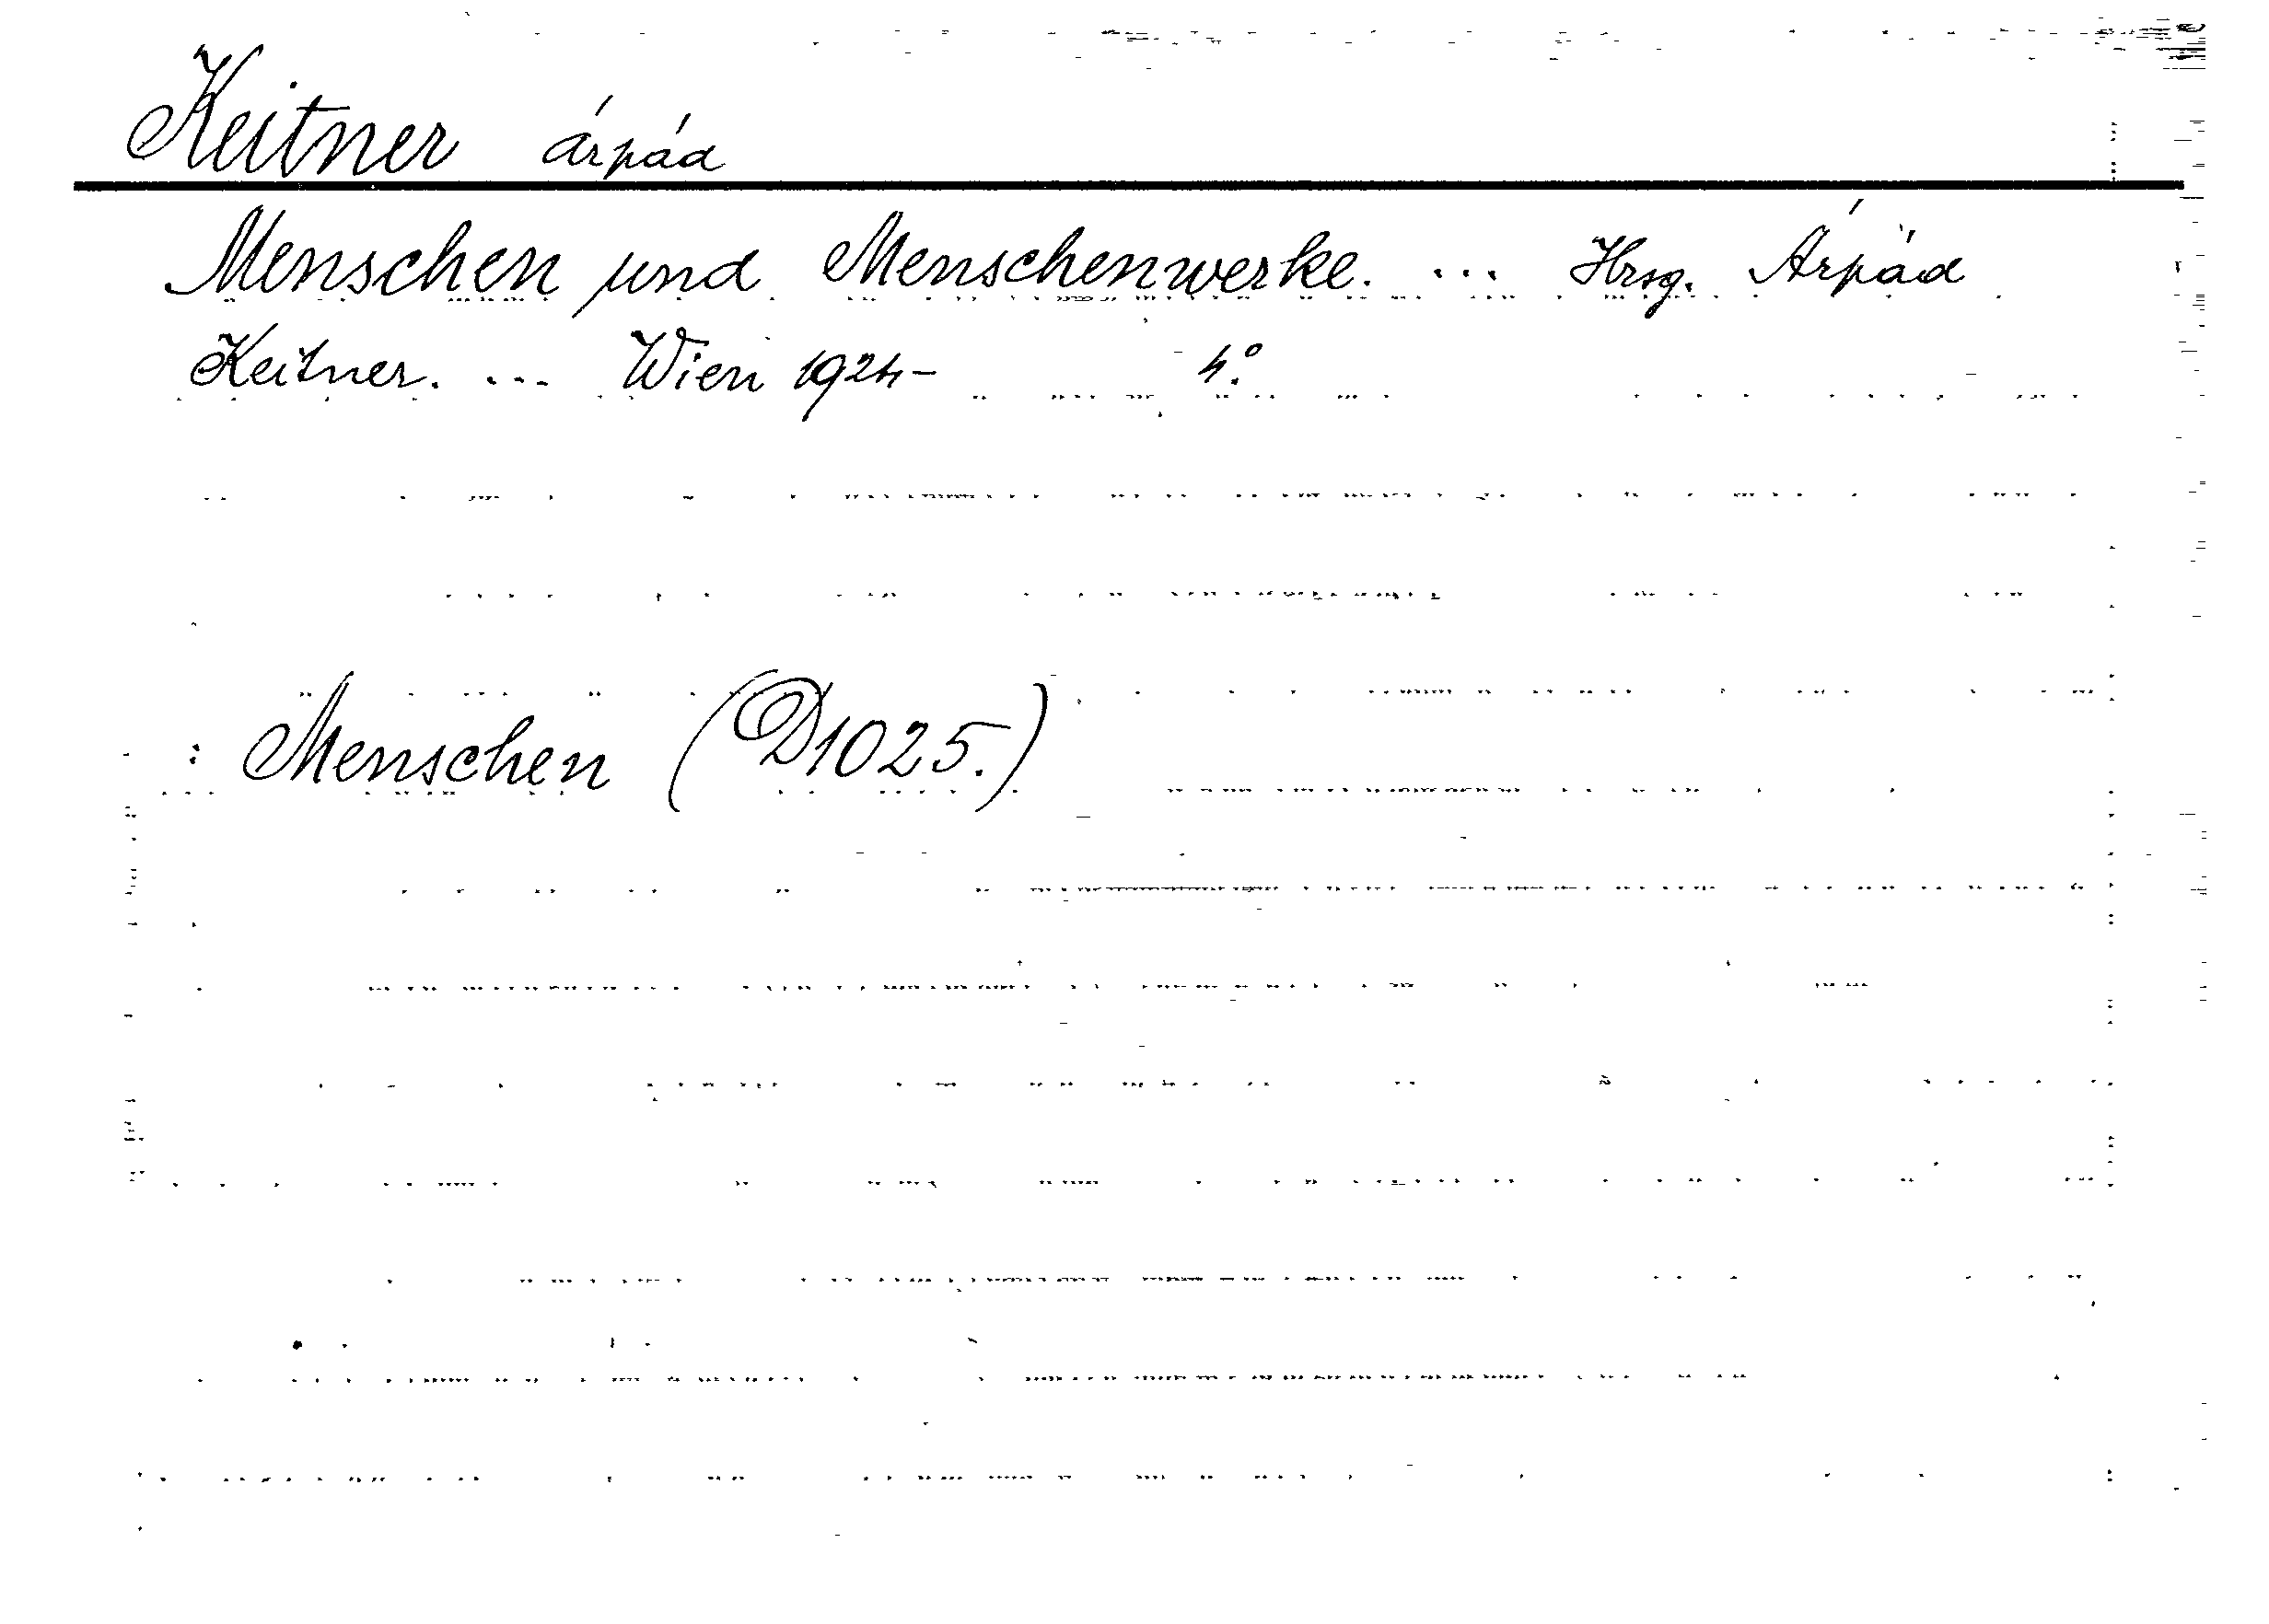 Keitner Árpád
Menschen und Menschenwerke. ... Hrsg. Árpád
Keitner. ... Wien 1924- 4°.
: Menschen (D1025.)